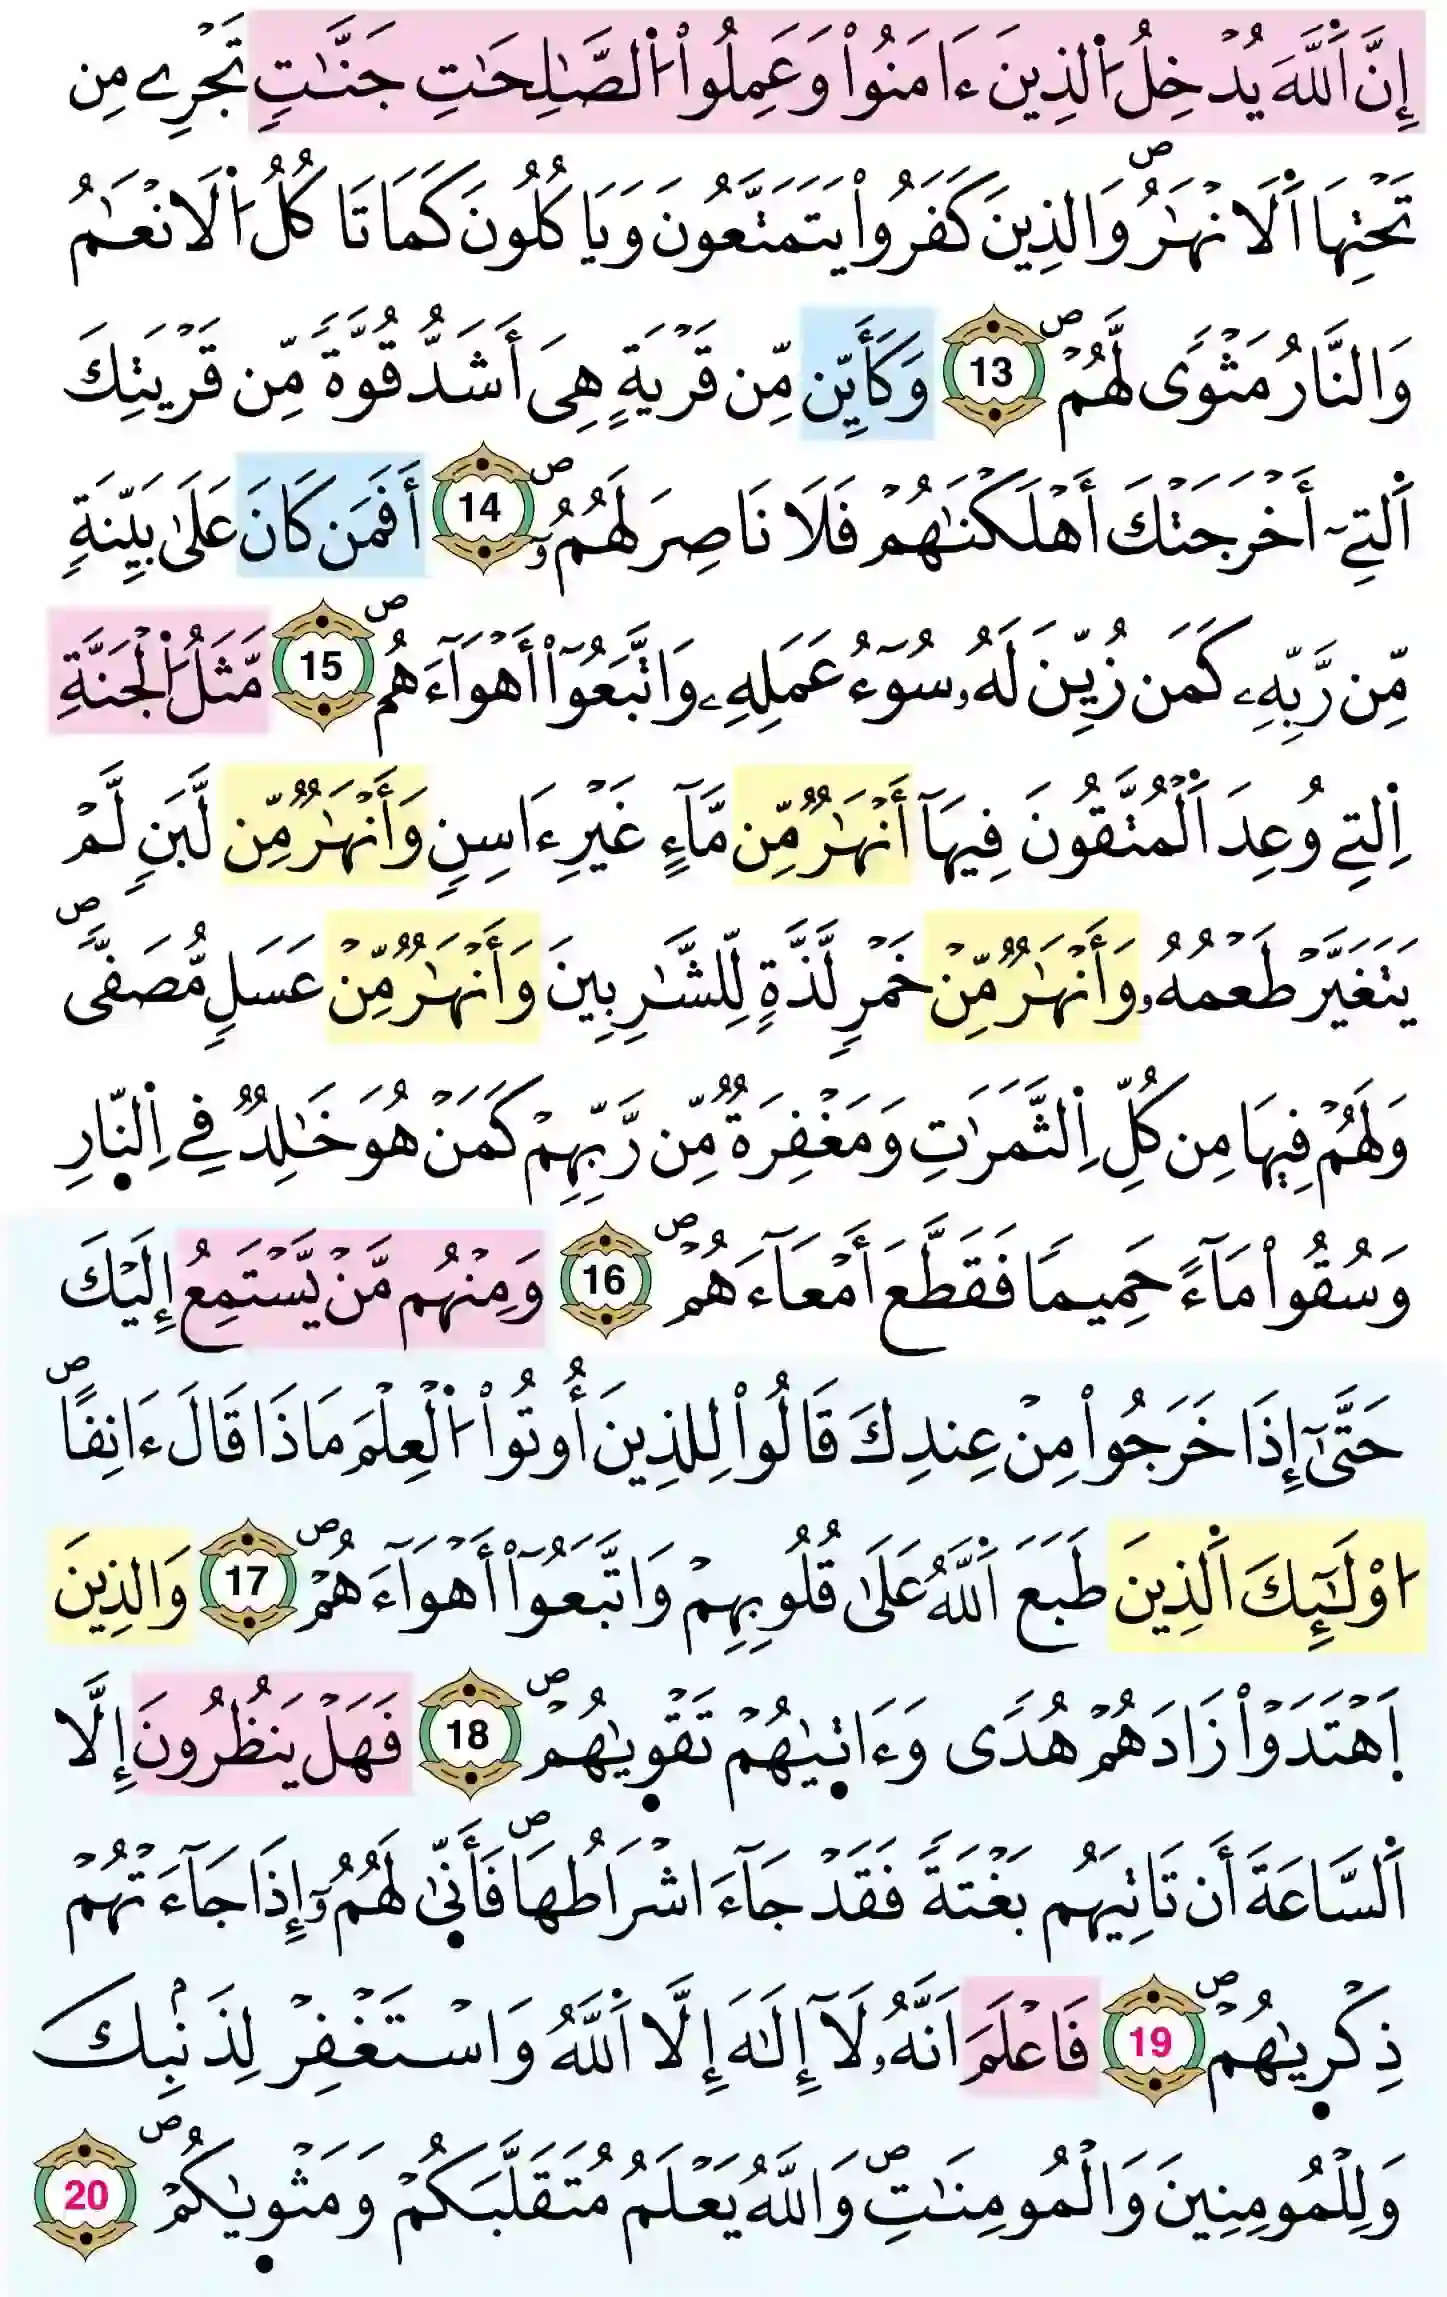 إِنَّ اَ۬للَّهَ يُدْخِلُ اُ۬لذِينَ ءَامَنُواْ وَعَمِلُواْ اُ۬لصَّٰلِحَٰتِ جَنَّٰتٖ تَجْرِے مِن
تَحْتِهَا اَ۬لَانْهَٰرُۖ وَالذِينَ كَفَرُواْ يَتَمَتَّعُونَ وَيَاكُلُونَ كَمَا تَاكُلُ اُ۬لَانْعَٰمُ
وَالنَّارُ مَثْوىٗ لَّهُمْۖ 13 وَكَأَيِّن مِّن قَرْيَةٍ هِىَ أَشَدُّ قُوَّةٗ مِّن قَرْيَتِكَ
اَ۬لتِےٓ أَخْرَجَتْكَ أَهْلَكْنَٰهُمْ فَلَا نَاصِرَ لَهُمُۥٓۖ 14 أَفَمَن كَانَ عَلَىٰ بَيِّنَةٖ
مِّن رَّبِّهِۦ كَمَن زُيِّنَ لَهُۥ سُوٓءُ عَمَلِهِۦ وَاتَّبَعُوٓاْ أَهْوَآءَهُمۖ 15 مَّثَلُ اُ۬لْجَنَّةِ
اِ۬لتِے وُعِدَ اَ۬لْمُتَّقُونَ فِيهَآ أَنْهَٰرٞ مِّن مَّآءٍ غَيْرِ ءَاسِنٖ وَأَنْهَٰرٞ مِّن لَّبَنٖ لَّمْ
يَتَغَيَّرْ طَعْمُهُۥ وَأَنْهَٰرٞ مِّنْ خَمْرٖ لَّذَّةٖ لِّلشَّٰرِبِينَ وَأَنْهَٰرٞ مِّنْ عَسَلٖ مُّصَفّىٗۖ
وَلَهُمْ فِيهَا مِن كُلِّ اِ۬لثَّمَرَٰتِ وَمَغْفِرَةٞ مِّن رَّبِّهِمْ كَمَنْ هُوَ خَٰلِدٞ فِے اِ۬لنّ۪ارِ
وَسُقُواْ مَآءً حَمِيماٗ فَقَطَّعَ أَمْعَآءَهُمْۖ 16 وَمِنْهُم مَّنْ يَّسْتَمِعُ إِلَيْكَ
حَتَّىٰٓ إِذَا خَرَجُواْ مِنْ عِندِكَ قَالُواْ لِلذِينَ أُوتُواْ اُ۬لْعِلْمَ مَاذَا قَالَ ءَانِفاًۖ
ا۟وْلَٰٓئِكَ اَ۬لذِينَ طَبَعَ اَ۬للَّهُ عَلَىٰ قُلُوبِهِمْ وَاتَّبَعُوٓاْ أَهْوَآءَهُمْۖ 17 وَالذِينَ
اَ۪هْتَدَوْاْ زَادَهُمْ هُدىٗ وَءَات۪يٰهُمْ تَقْو۪يٰهُمْۖ 18 فَهَلْ يَنظُرُونَ إِلَّا
اَ۬لسَّاعَةَ أَن تَاتِيَهُم بَغْتَةٗ فَقَدْ جَآءَ اشْرَاطُهَاۖ فَأَنّ۪ىٰ لَهُمُۥٓ إِذَا جَآءَتْهُمْ
ذِكْر۪يٰهُمْۖ 19 فَاعْلَمَ اَنَّهُۥ لَآ إِلَٰهَ إِلَّا اَ۬للَّهُ وَاسْتَغْفِرْ لِذَنۢبِكَ
وَلِلْمُومِنِينَ وَالْمُومِنَٰتِۖ وَاللَّهُ يَعْلَمُ مُتَقَلَّبَكُمْ وَمَثْو۪يٰكُمْۖ 20